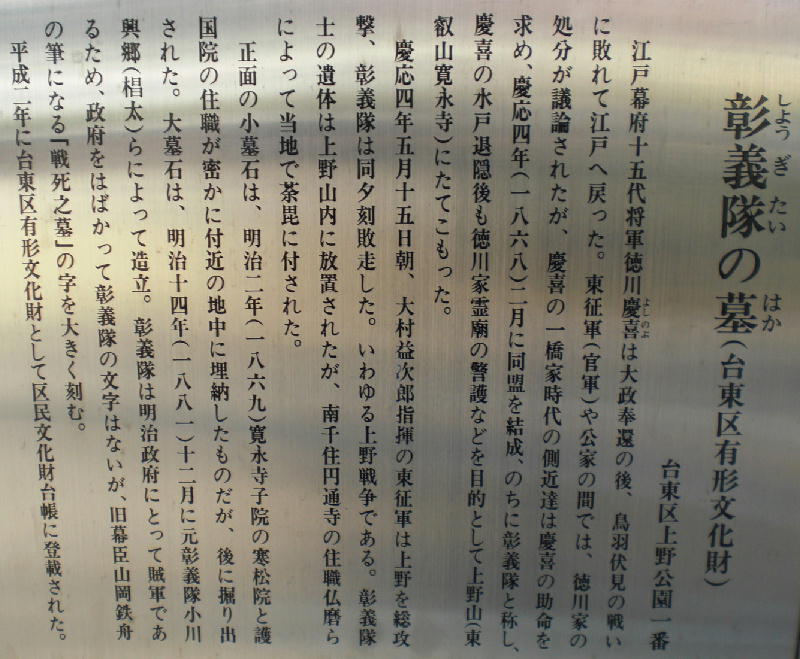 彰義隊の墓(台東区有形文化財)
しょうぎたい はか
台東区上野公園一番
江戸幕府十五代将軍徳川慶喜は大政奉還の後、鳥羽伏見の戦い
よしのぶ
に敗れて江戸へ戻った。東征軍(官軍)や公家の間では、徳川家の
処分が議論されたが、慶喜の一橋家時代の側近達は慶喜の助命を
求め、慶応四年(一八六八)二月に同盟を結成、のちに彰義隊と称し、
慶喜の水戸退隠後も徳川家霊廟の警護などを目的として上野山(東
叡山寛永寺)にたてこもった。
慶応四年五月十五日朝、大村益次郎指揮の東征軍は上野を総攻
撃、彰義隊は同夕刻敗走した。いわゆる上野戦争である。彰義隊
士の遺体は上野山内に放置されたが、南千住円通寺の住職仏磨ら
によって当地で荼毘に付された。
正面の小墓石は、明治二年(一八六九)寛永寺子院の寒松院と護
国院の住職が密かに付近の地中に埋納したものだが、後に掘り出
された。大墓石は、明治十四年(一八八一)十二月に元彰義隊小川
興郷(椙太)らによって造立。彰義隊は明治政府にとって賊軍であ
るため、政府をはばかって彰義隊の文字はないが、旧幕臣山岡鉄舟
の筆になる「戦死之墓」の字を大きく刻む。
平成二年に台東区有形文化財として区民文化財台帳に登載された。